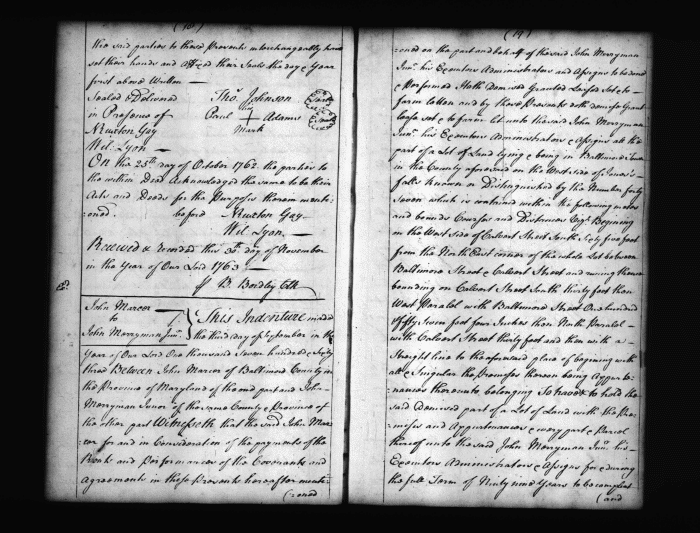 (18)
the said parties to these Presents interchangeably have
set their hands and affixed their Seals the day & Year
first above Written —
Sealed & Delivered Thos. Johnson Seal
in Presence of Paul + Adams Seal
Mark
Nuxton Gay
Wil. Lyon —
On the 25th day of October 1762 the parties to
the within Deed Acknowledged the same to be their
Act and Deeds for the Purposes therein menti-
oned. before Nuxton Gay
Wil. Lyon —
Received & recorded this 30th day of November
in the Year of Our Lord 1763 —
P B. Bordley Clk
John Mercer
to
John Merryman Junr.
This Indenture made
the third day of September in the
Year of Our Lord One thousand Seven hundred & Sixty
three Between John Mercer of Baltimore County in
the Province of Maryland of the one part and John
Merryman Junor of the same County & Province of
the other part Witnesseth that the said John Mer-
cer for and in Consideration of the payments of the
Rents and performances of the Covenants and
agreements in these Presents hereafter menti-
(oned
(19)
-oned on the part and behalf of the said John Merryman
Junr. his Executors Administrators and Assigns to be done
& Performed Hath Demised Granted Leased Set & to
farm letten and by these Presents doth demise Grant
Lease set & to farm Let unto the said John Merryman
Junr. his Executors Administrators & Assigns all that
part of a Lot of Land lying & being in Baltimore Town
in the County aforesaid on the West side of Jones's
falls Known or Distinguished by the Number forty
Seven which is contained within the following metes
and bounds Courses and Distances Vizt. Begining
on the West side of Calvert Street South Sixty five foot
from the North East corner of the whole Lot between
Baltimore Street & Calvert Street and runing thence
bounding on Calvert Street South thirty foot then
West Paralel with Baltimore Street One hundred
& fifty Seven foot four Inches then North Paralel
with Calvert Street thirty foot and then with a
Straight line to the aforesaid place of begining with
all & Singular the Premises thereon being Appurte-
nances thereunto belonging To have & to hold the
said Demised part of a Lot of Land with the Pre-
mises and Appurtenances & every part & Parcel
thereof unto the said John Merryman Junr. his
Executors Administrators & Assigns for & during
the full Term of Ninty nine Years to be compleat
(and